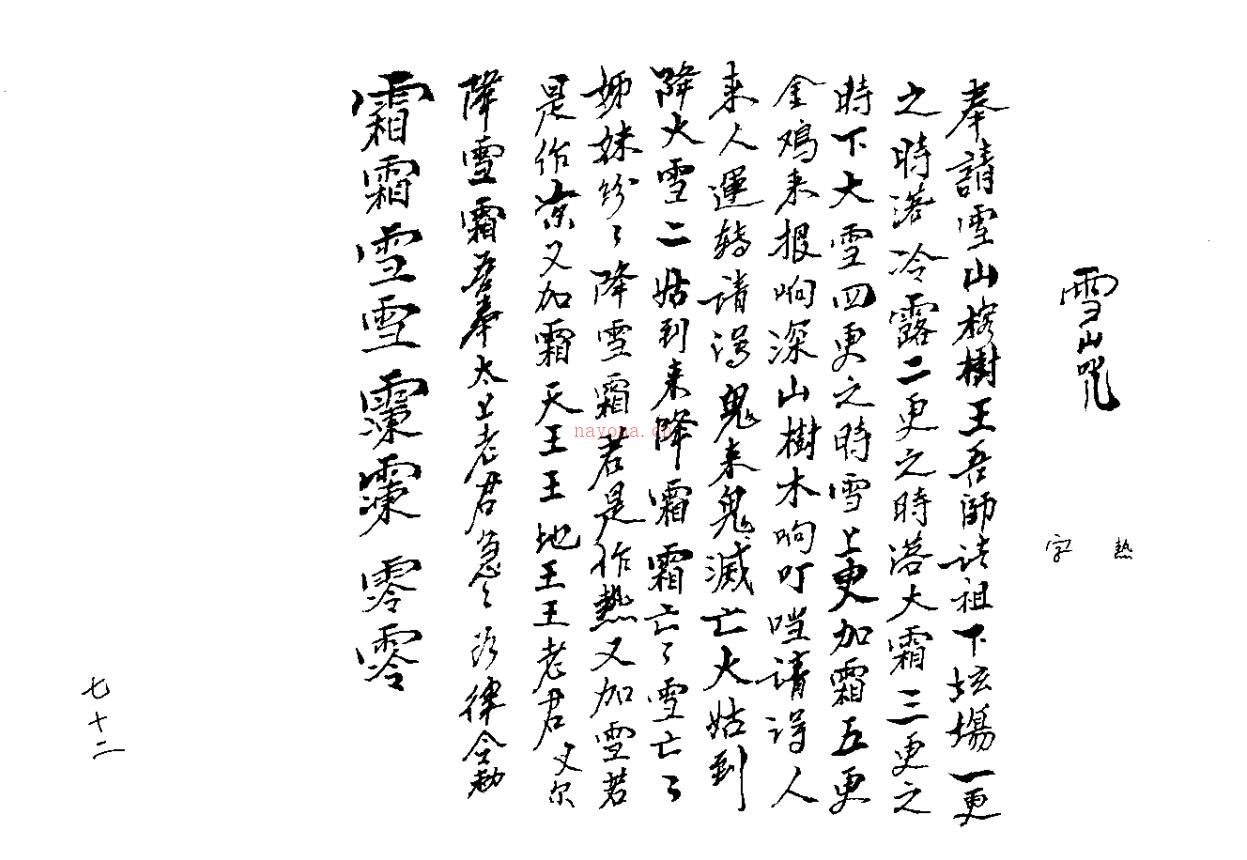 雪山咒
熱
字
奉請雪山榕樹王吾師法祖下坛場一更
之時落冷露二更之時落大霜三更之
時下大雪四更之時雪上更加霜五更
金鸡来报响深山樹木响叮噹請得人
来人運轉請得鬼来鬼滅亡大姑到
降大雪二姑到来降霜霜亡々雪亡々
姊妹紛々降雪霜若是作熱又加雪若
是作凉又加霜天王王地王王老君又尔
降雪霜吾奉太上老君急々如律令勅
霜霜雪雪零零
七十二
nayona.cn